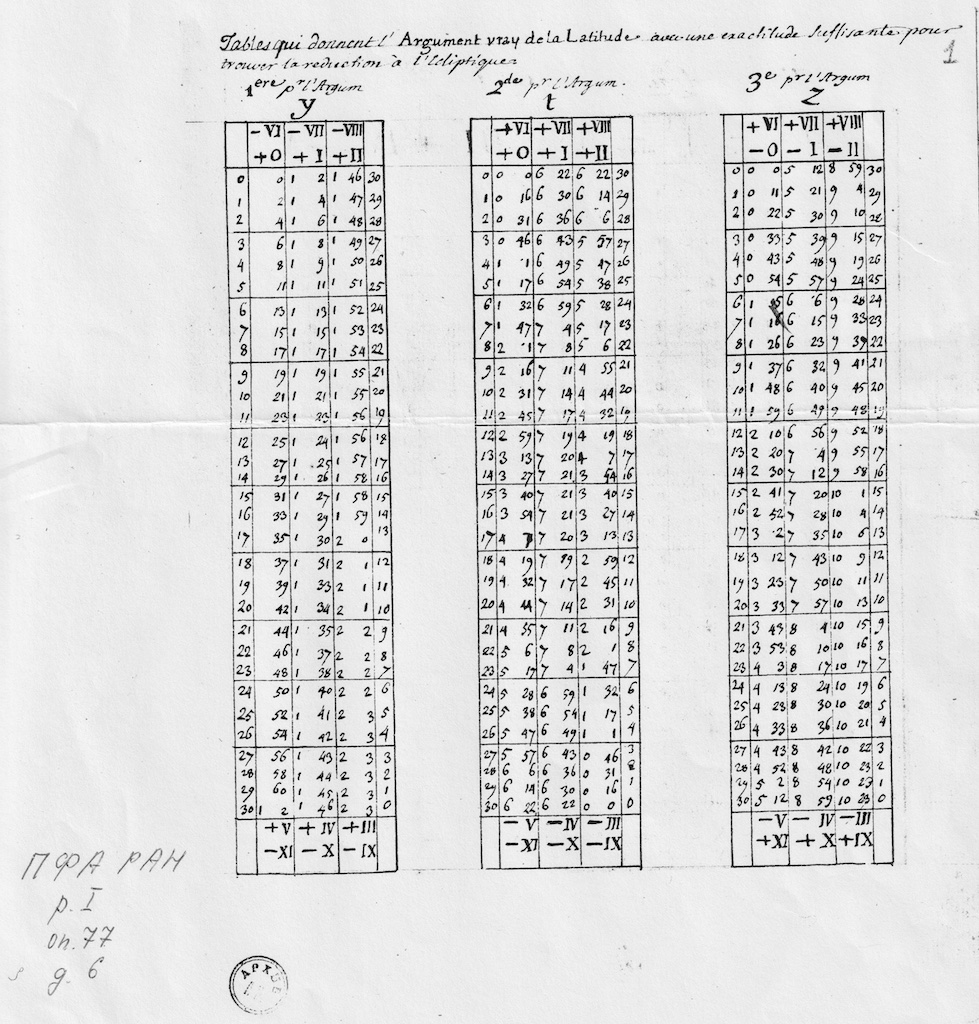 Tables qui donnent l'Argument vray de la Latitude avec une exactitude suffisante pour
trouver la reduction à l'Ecliptique
1
1ere pr l'Argum
y
− VI − VII − VIII
+ O + I + II
0 0 1 2 1 46 30
1 2 1 4 1 47 29
2 4 1 6 1 48 28
3 6 1 8 1 49 27
4 8 1 9 1 50 26
5 11 1 11 1 51 25
6 13 1 13 1 52 24
7 15 1 15 1 53 23
8 17 1 17 1 54 22
9 19 1 19 1 55 21
10 21 1 21 1 55 20
11 23 1 23 1 56 19
12 25 1 24 1 56 18
13 27 1 25 1 57 17
14 29 1 26 1 58 16
15 31 1 27 1 58 15
16 33 1 29 1 59 14
17 35 1 30 2 0 13
18 37 1 31 2 1 12
19 39 1 33 2 1 11
20 42 1 34 2 1 10
21 44 1 35 2 2 9
22 46 1 37 2 2 8
23 48 1 38 2 2 7
24 50 1 40 2 2 6
25 52 1 41 2 3 5
26 54 1 42 2 3 4
27 56 1 43 2 3 3
28 58 1 44 2 3 2
29 60 1 45 2 3 1
30 1 2 1 46 2 3 0
+ V + IV + III
− XI − X − IX
2de pr l'Argum.
t
+ VI + VII + VIII
+ O + I + II
0 0 0 6 22 6 22 30
1 0 16 6 30 6 14 29
2 0 31 6 36 6 6 28
3 0 46 6 43 5 57 27
4 1 1 6 49 5 47 26
5 1 17 6 54 5 38 25
6 1 32 6 59 5 28 24
7 1 47 7 4 5 17 23
8 2 1 7 8 5 6 22
9 2 16 7 11 4 55 21
10 2 31 7 14 4 44 20
11 2 45 7 17 4 32 19
12 2 59 7 19 4 19 18
13 3 13 7 20 4 7 17
14 3 27 7 21 3 54 16
15 3 40 7 21 3 40 15
16 3 54 7 21 3 27 14
17 4 7 7 20 3 13 13
18 4 19 7 19 2 59 12
19 4 32 7 17 2 45 11
20 4 44 7 14 2 31 10
21 4 35 7 11 2 16 9
22 5 6 7 8 2 1 8
23 5 17 7 4 1 47 7
24 5 28 6 59 1 32 6
25 5 38 6 54 1 17 5
26 5 47 6 49 1 1 4
27 5 57 6 43 0 46 3
28 6 6 6 36 0 31 2
29 6 14 6 30 0 16 1
30 6 22 6 22 0 0 0
− V − IV − III
− XI − X − IX
3e pr l'Argum
Z
+ VI + VII + VIII
− O − I − II
0 0 0 5 12 8 59 30
1 0 11 5 21 9 4 29
2 0 22 5 30 9 10 28
3 0 33 5 39 9 15 27
4 0 43 5 48 9 19 26
5 0 54 5 57 9 24 25
6 1 5 6 6 9 28 24
7 1 16 6 15 9 33 23
8 1 26 6 23 9 39 22
9 1 37 6 32 9 41 21
10 1 48 6 40 9 45 20
11 1 59 6 49 9 48 19
12 2 10 6 56 9 52 18
13 2 20 7 4 9 55 17
14 2 30 7 12 9 58 16
15 2 41 7 20 10 1 15
16 2 52 7 28 10 4 14
17 3 2 7 35 10 6 13
18 3 12 7 43 10 9 12
19 3 23 7 50 10 11 11
20 3 33 7 57 10 13 10
21 3 43 8 4 10 15 9
22 3 53 8 10 10 16 8
23 4 3 8 17 10 17 7
24 4 13 8 24 10 19 6
25 4 23 8 30 10 20 5
26 4 33 8 36 10 21 4
27 4 43 8 42 10 22 3
28 4 52 8 48 10 23 2
29 5 2 8 54 10 23 1
30 5 12 8 59 10 23 0
− V − IV − III
+ XI + X + IX
ПФА РАН
р. I
оп. 77
д. 6
АРХИВ